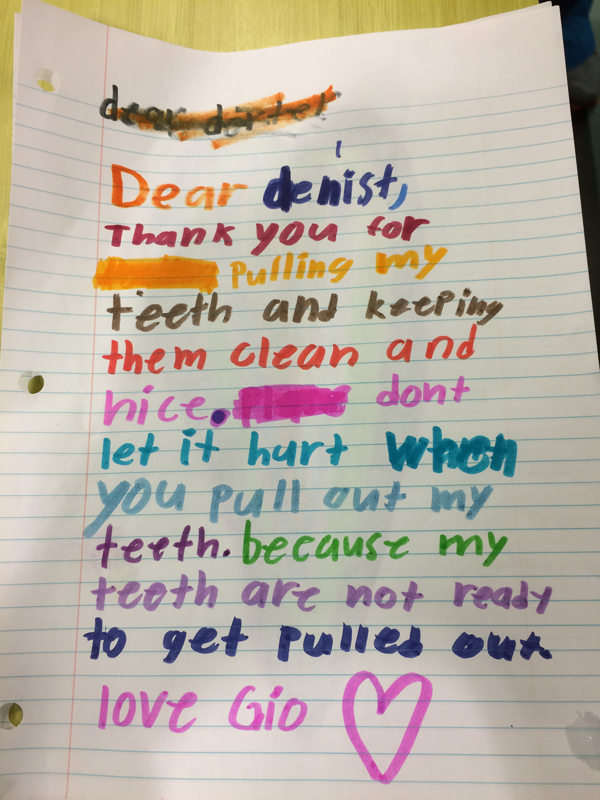 dear
Dear denist,
Thank you for
Pulling my
teeth and keeping
them clean and
nice. dont
let it hurt when
you pull out my
teeth. because my
teeth are not ready
to get pulled out.
love Gio